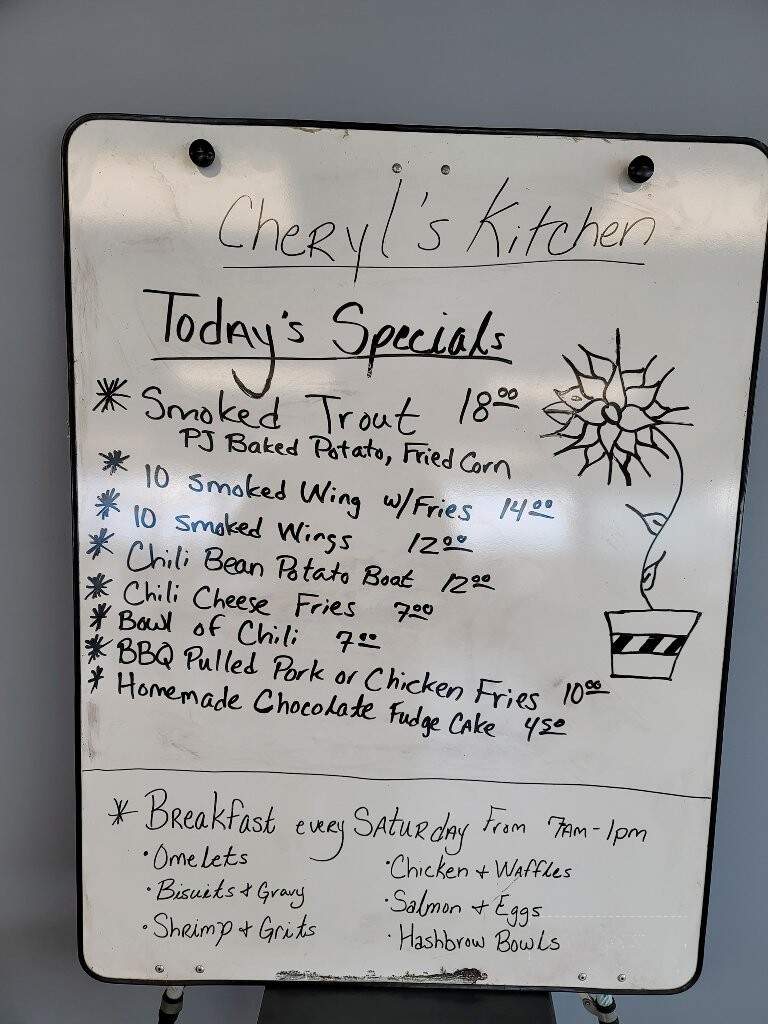 Cheryl's Kitchen
Today's Specials
* Smoked Trout 18.00
PJ Baked Potato, Fried Corn
* 10 Smoked Wing w/Fries 14.00
* 10 Smoked Wings 12.00
* Chili Bean Potato Boat 12.00
* Chili Cheese Fries 7.00
* Bowl of Chili 7.00
* BBQ Pulled Pork or Chicken Fries 10.00
* Homemade Chocolate Fudge Cake 4.50
* Breakfast every Saturday From 7Am-1pm
• Omelets
• Biscuits & Gravy
• Shrimp & Grits
• Chicken & Waffles
• Salmon & Eggs
• Hashbrow Bowls